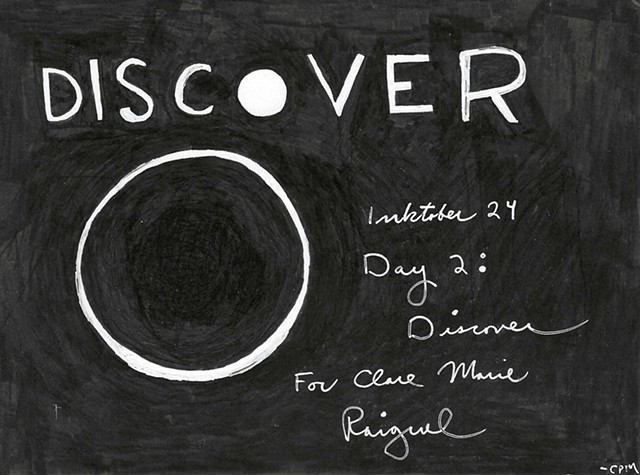 DISCOVER
Inktober 24
Day 2:
Discover
For Clare Marie
Raiguel